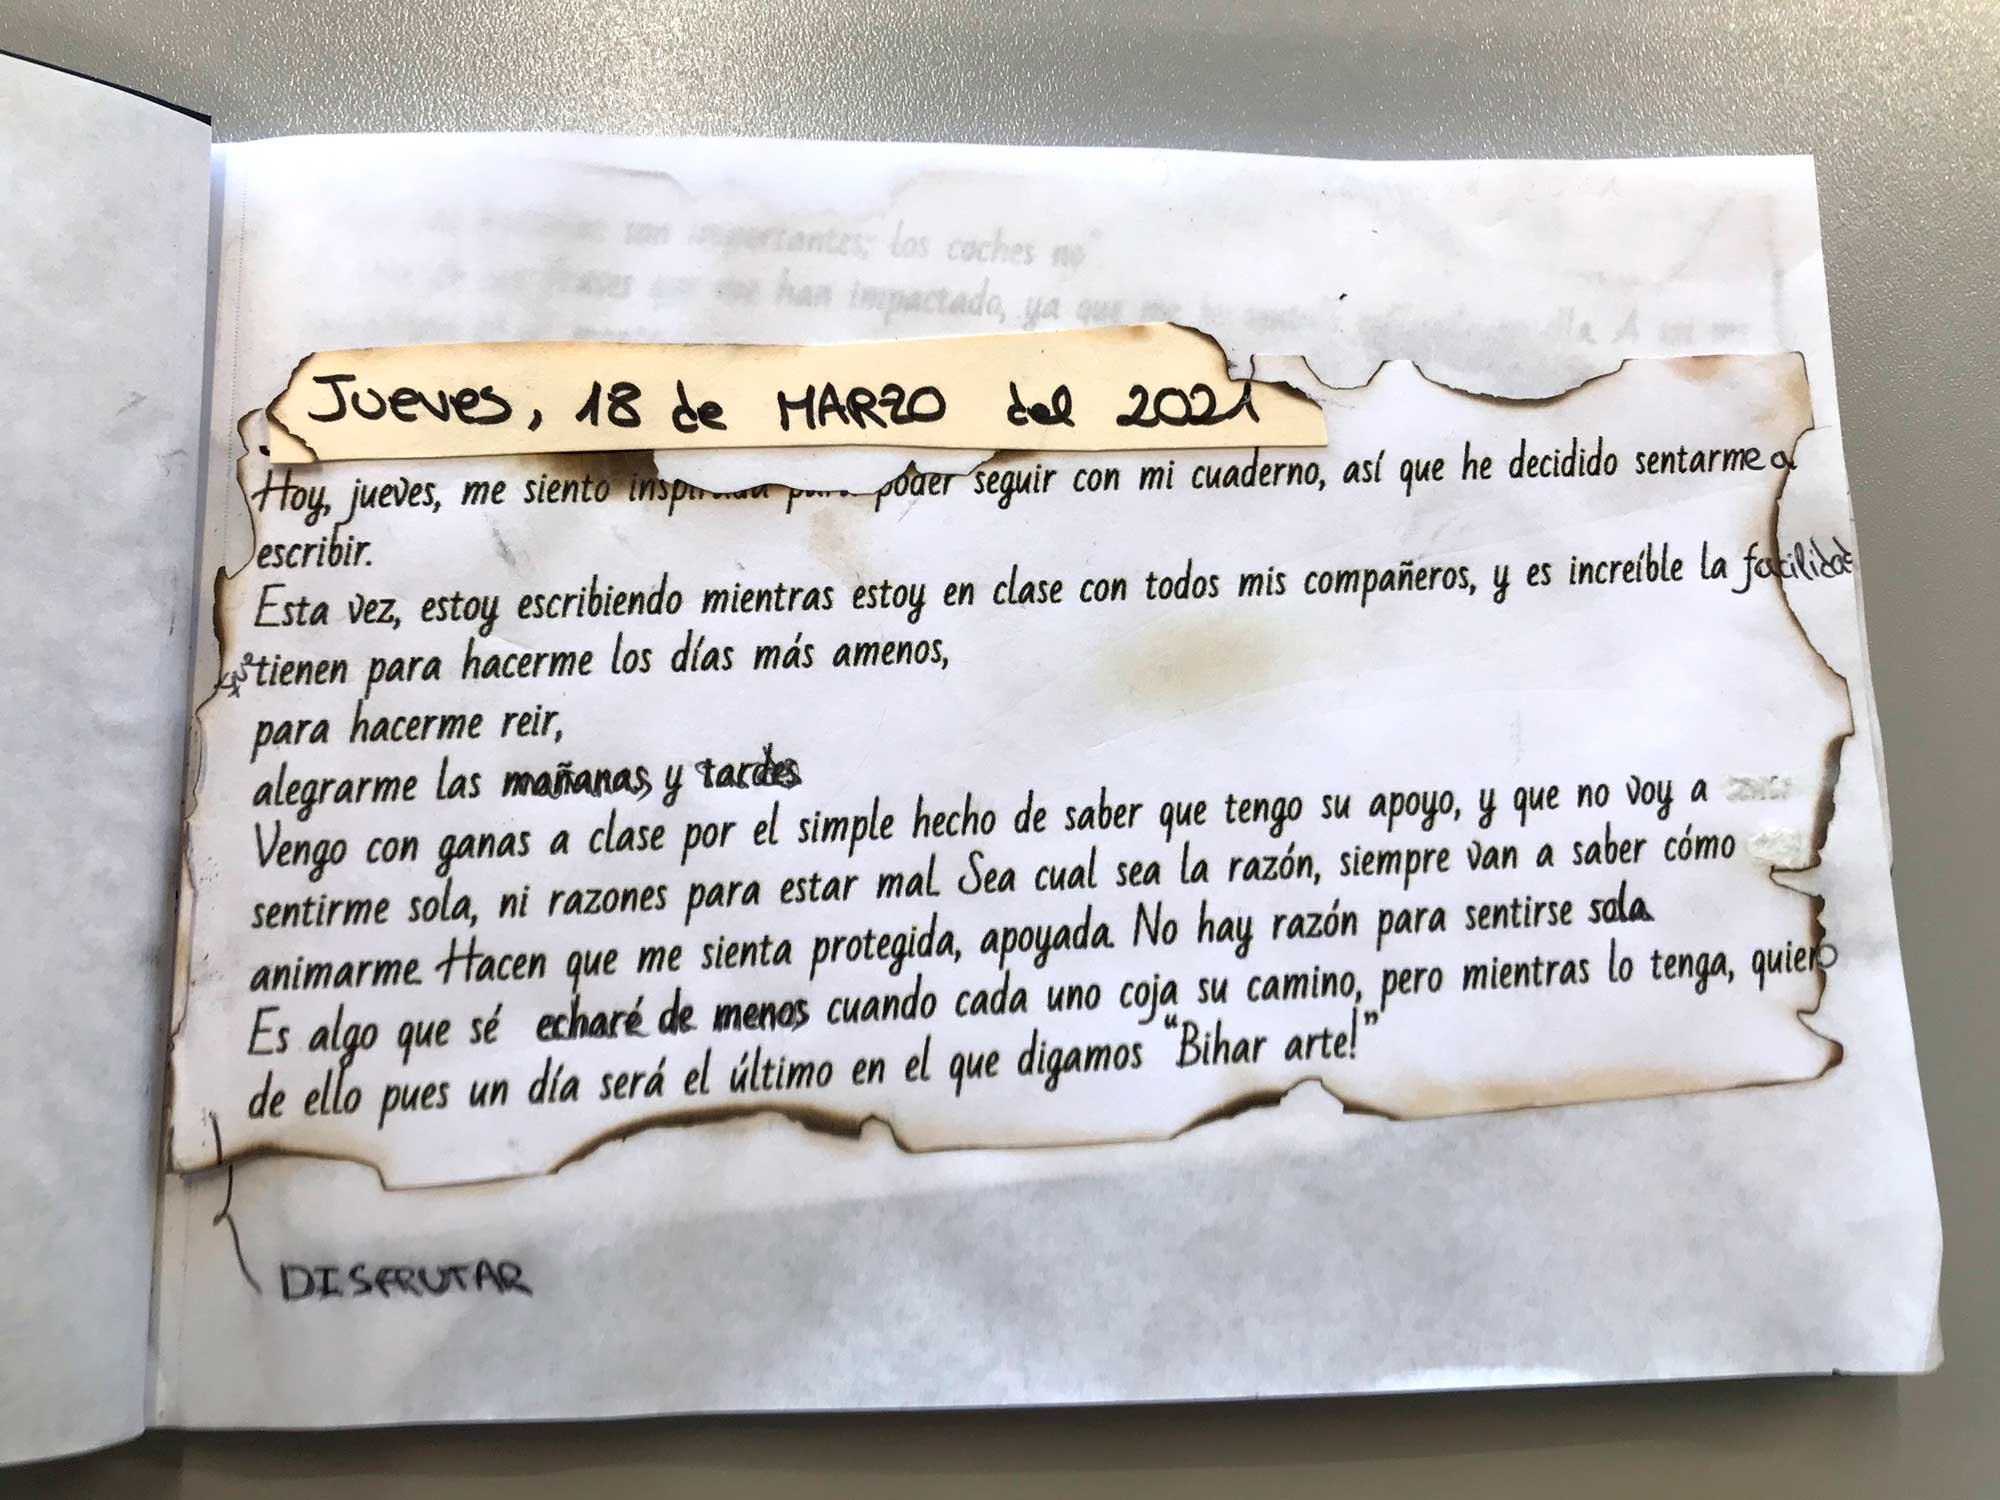 son importantes; los coches no"
han impactado, ya que me
Jueves, 18 de MARZO del 2021
Hoy, jueves, me siento inspirada para poder seguir con mi cuaderno, así que he decidido sentarme a
escribir.
Esta vez, estoy escribiendo mientras estoy en clase con todos mis compañeros, y es increíble la facilidad
que tienen para hacerme los días más amenos,
para hacerme reir,
alegrarme las mañanas y tardes
Vengo con ganas a clase por el simple hecho de saber que tengo su apoyo, y que no voy a
sentirme sola, ni razones para estar mal. Sea cual sea la razón, siempre van a saber cómo
animarme. Hacen que me sienta protegida, apoyada. No hay razón para sentirse sola
Es algo que sé echaré de menos cuando cada uno coja su camino, pero mientras lo tenga, quiero
de ello pues un día será el último en el que digamos "Bihar arte!"
DISFRUTAR